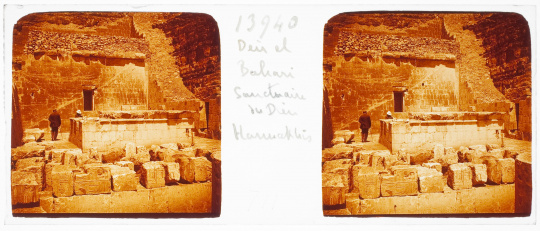 13940
Deir el
Bahari
Sanctuaire
du Dieu
Harmakhis